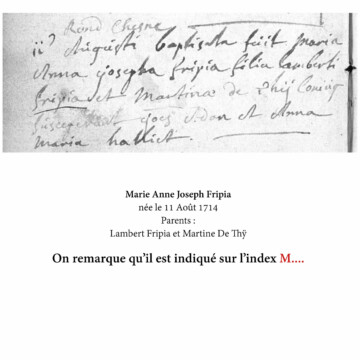 Rond Chesne
ii Augusti baptisata fuit maria
Anna josepha fripia filia lamberti
fripia et Martinæ de Thij Coniug
susceperunt joes et Anna
maria halliet.
Marie Anne Joseph Fripia
née le 11 Août 1714
Parents :
Lambert Fripia et Martine De Thÿ
On remarque qu'il est indiqué sur l'index M....